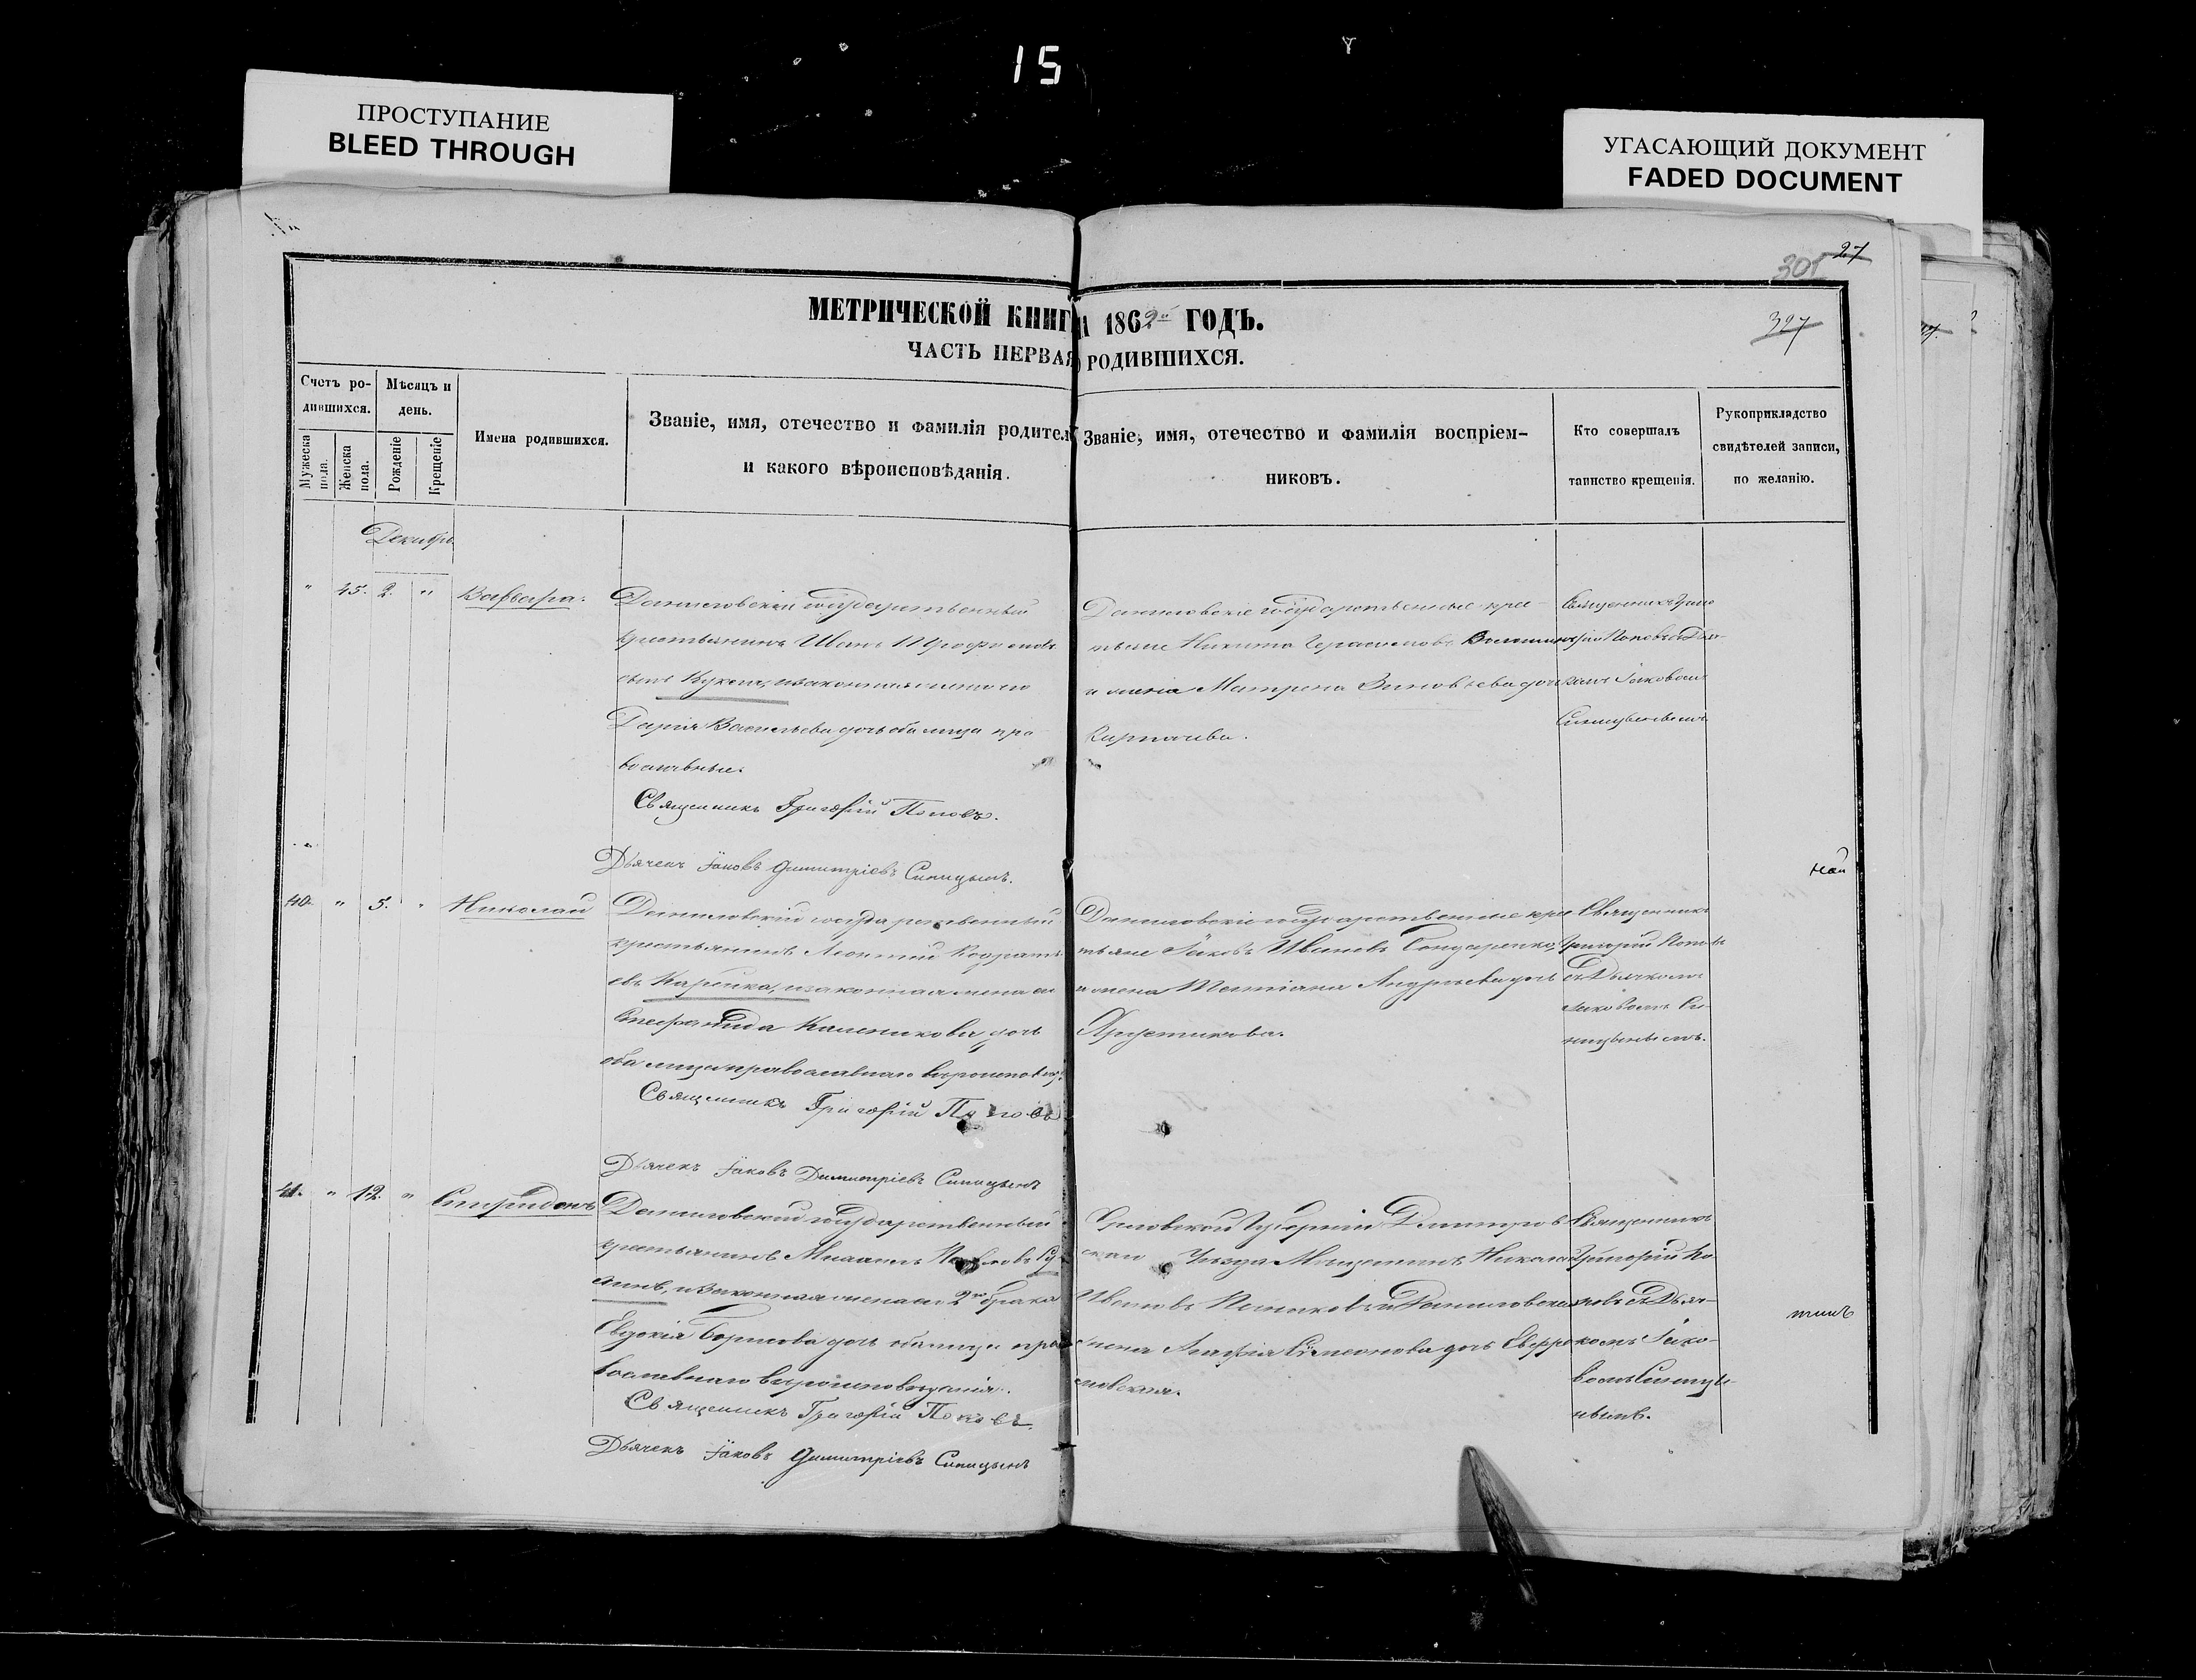 15
ПРОСТУПАНИЕ
BLEED THROUGH
УГАСАЮЩИЙ ДОКУМЕНТ
FADED DOCUMENT
27
301
327
МЕТРИЧЕСКОЙ КНИГИ 1862 ГОДЪ.
ЧАСТЬ ПЕРВАЯ РОДИВШИХСЯ.
Счетъ ро-
дившихся.
Мужеска пола.
Женска пола.
Мѣсяцъ и
день.
Рожденіе
Крещеніе
Имена родившихся.
Званіе, имя, отечество и фамилія родител
и какого вѣроисповѣданія.
Званіе, имя, отечество и фамилія воспріем-
никовъ.
Кто совершалъ
таинство крещенія.
Рукоприкладство
свидѣтелей записи,
по желанію.
Декабрь
" 45. 2. " Варвара.
Даниловскій государственный
крестьянинъ Иванъ
сынъ и законная жена его
Дарія Васильева дочь оба лица пра
вославные.
Священникъ Григорій Поповъ.
Дьячекъ Іаковъ Димитріевъ Синицынъ.
Даниловскіе государственные крес
тьяне Никита Герасимовъ
и жена Матрена Зиновьева дочь
Священникъ Григо
рій Поповъ съ Дьяч-
комъ Іаковомъ
Синицынымъ.
40. " 5. " Николай
Даниловскій государственный
крестьянинъ Леонтій Кодрать
евъ и законная жена его
Стефанида Калиникова дочь
оба лица православнаго вѣроисповѣд.
Священникъ Григорій Поповъ
Дьячекъ Іаковъ Димитріевъ Синицынъ
Даниловскіе государственные крес
тьяне Іаковъ Ивановъ Бондаренко,
и жена Татіана Андреева дочь
Священникъ
Григорій Поповъ
съ Дьячкомъ
Іаковомъ Си-
ницынымъ.
41. " 12. " Спиридонъ
Даниловскій государственный
крестьянинъ Михаилъ
и законная жена его 2го брака
Евдокія Борисова дочь оба лица пра
вославнаго вѣроисповѣданія.
Священникъ Григорій Поповъ.
Дьячекъ Іаковъ Димитріевъ Синицынъ
Орловской Губерніи Дмитров
скаго Уѣзда Мѣщанинъ Николай
Ивановъ
жена Агафія Симеонова дочь
Священникъ
Григорій По
повъ съ Дьяч-
комъ Іако-
вомъ Синицы-
нымъ.